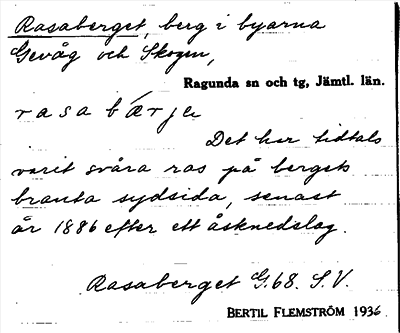 Rasaberget, berg i byarna
Gevåg och Skogen,
Ragunda sn och tg, Jämtl. län.
rasabærje
Det har tidtals
varit svåra ras på bergets
branta sydsida, senast
år 1886 efter ett åsknedslag.
Rasaberget G.68. S.V.
BERTIL FLEMSTRÖM 1936.